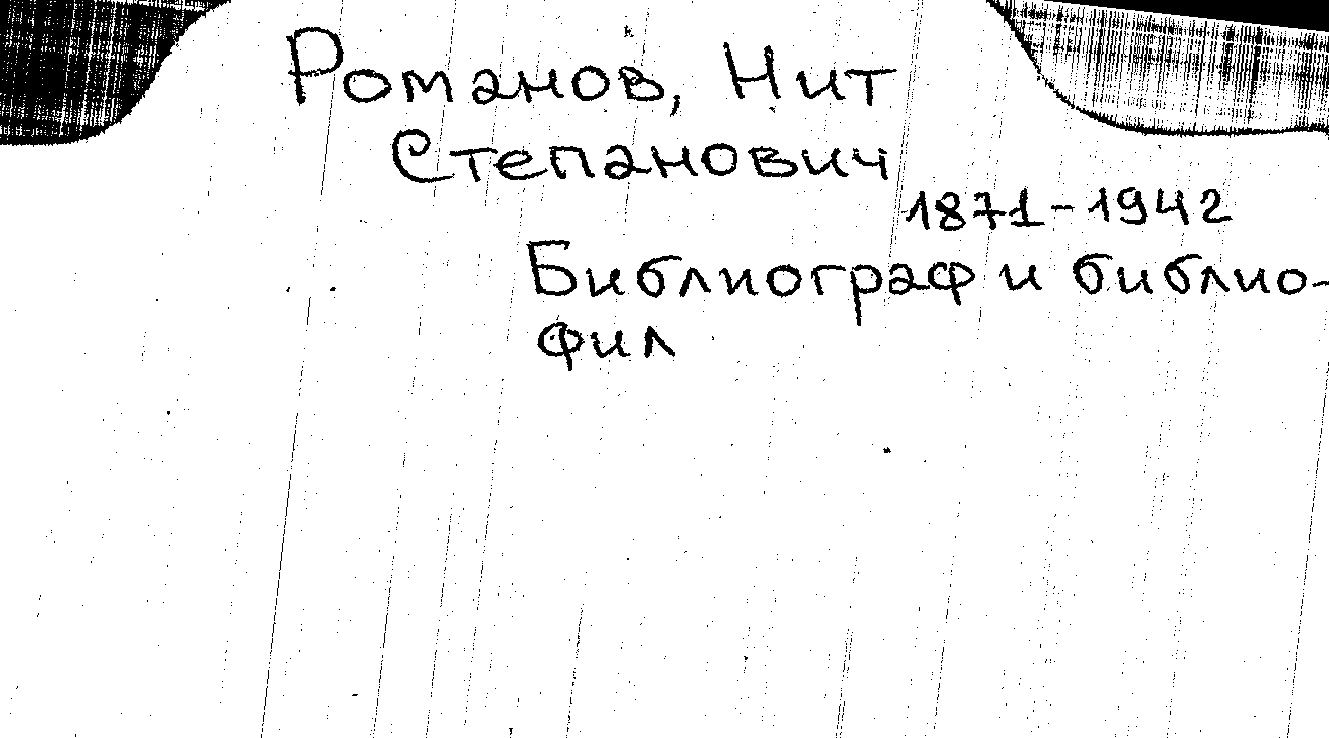 Романов, Нит
Степанович
1871-1942
Библиограф и библио-
фил